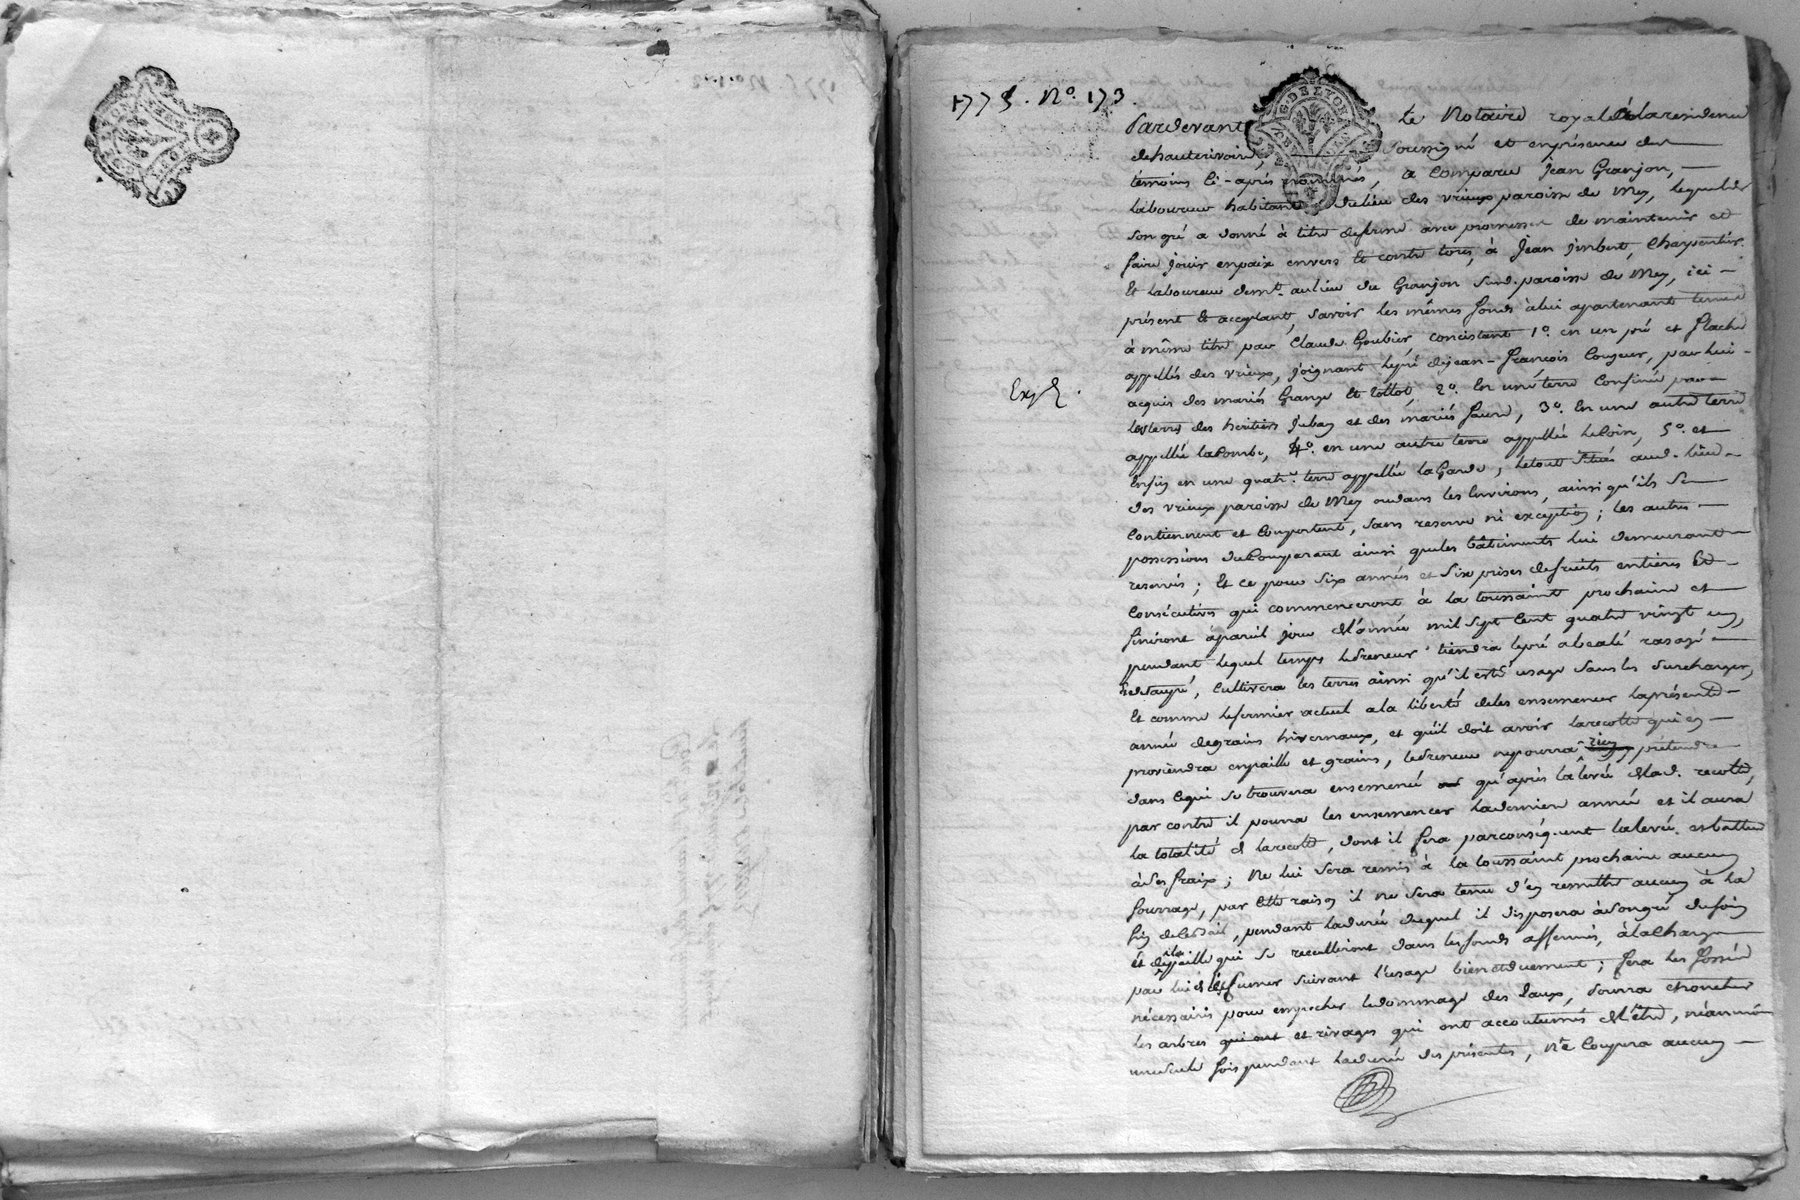 1775. N.° 173.
G. DE LYON
Pardevant Le Notaire royal à la residence
de hauterivoire, soussigné et en présence des
témoins ci-après nommés, a comparu Jean Granjon,
laboureur habitant du lieu des vrieux paroisse de Mey, lequel de
son gré a donné à titre de ferme avec promesse de maintenir et
faire jouir en paix envers et contre tous, à Jean Jimbert, Charpentier
Et Laboureur demt. au lieu du Granjon susd. paroisse de Mey, ici
présent et acceptant, savoir les mêmes fonds à lui apartenant tenus
à même titre par Claude Goubier, concistant 1°. en un pré et flache
appellés des vrieux, joignant le pré de jean-françois Cougeur, par lui
acquis des mariés Grange et tottot, 2°. En une terre Confinée par
les terres des heritiers Jubay et des mariés faure, 3°. En une autre terre
Exp.
appellée la Combe, 4°. en une autre terre appellée le Coin, 5°. et
Enfin en une quatr.e terre appellée la Garde, le tout situés aud. lieu
des vrieux paroisse de Mey ou dans les Environs, ainsi qu'ils se
Contiennent et Comportent, sans reserve ni exception; les autres
possessions du Comparant ainsi que les bâtiments lui demeurant
reservés; Et ce pour six années et six prises de fruits entieres Et
Consécutives qui commenceront à la toussaint prochaine et
finiront à pareil jour de l'année mil sept Cent quatre vingt un,
pendant lequel temps le Preneur tiendra le pré abealé rasazé
et détaupé, Cultivera les terres ainsi qu'il est d'usage sans les surcharger,
Et comme le fermier actuel a la liberté de les ensemencer la présente
année de grains hivernaux, et qu'il doit avoir la recolte qui en
proviendra en paille et grains, le Preneur ne pourra rien prétendre
dans ce qui se trouvera ensemencé qu'après la levée de lad. recolte,
par contre il pourra les ensemencer la derniere année et il aura
la totalité de la recolte, dont il fera par conséquent la levée et battue
à ses fraix; Ne lui sera remis à la toussaint prochaine aucun
fourrage, par cette raison il ne sera tenu d'en remettre aucun à la
fin de ce Bail, pendant la durée duquel il disposera à son gré du foin
et de la paille qui se recuilliront dans les fonds affermés, à la charge
par lui de les fumer suivant l'usage bien et duement; fera les fossés
nécessaires pour empecher le dommage des Eaux, Pourra ebrancher
les arbres qui ont et rivages qui ont accoutumés de l'être, néanmoins
une seule fois pendant la durée des présentes, N'e Coupera aucun